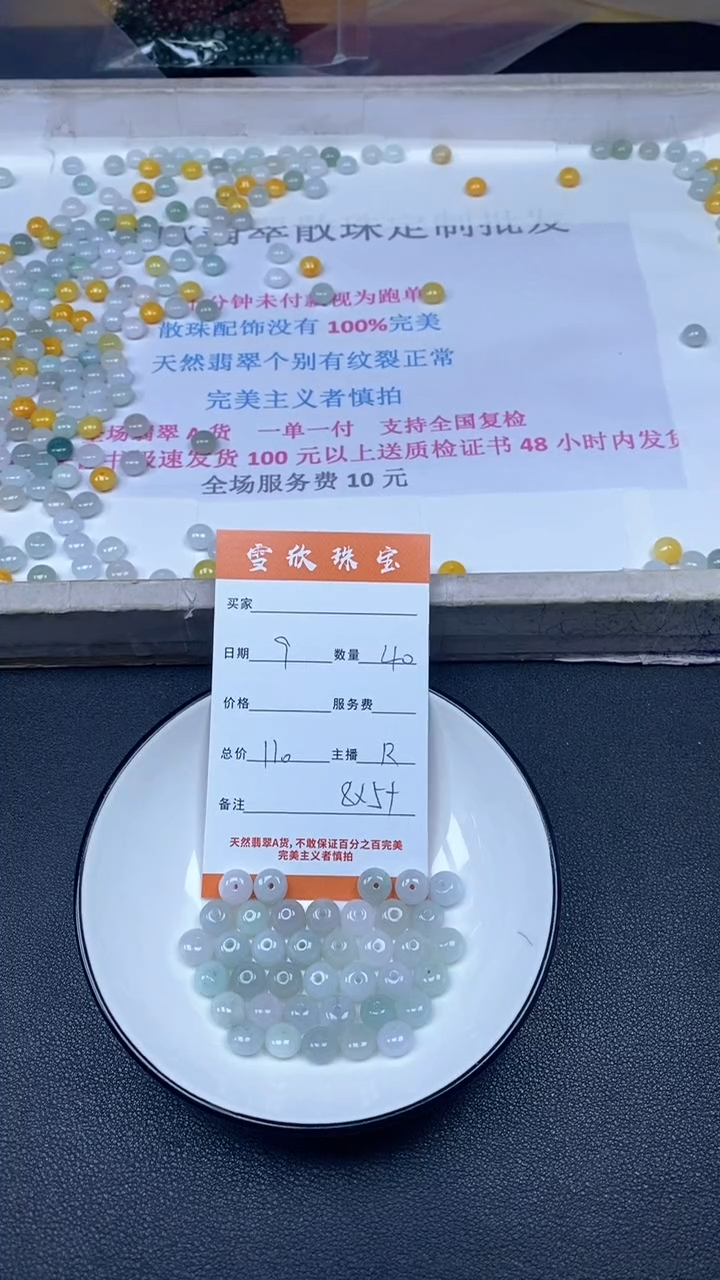 翡翠散珠定制批发
分钟未付款视为跑单
散珠配饰没有 100%完美
天然翡翠个别有纹裂正常
完美主义者慎拍
全场翡翠 A 货 一单一付 支持全国复检
极速发货 100 元以上送质检证书 48 小时内发货
全场服务费 10 元
雪欣珠宝
买家
日期 9 数量 40
价格 服务费
总价 110 主播 R
备注 8x5+
天然翡翠A货,不敢保证百分之百完美
完美主义者慎拍